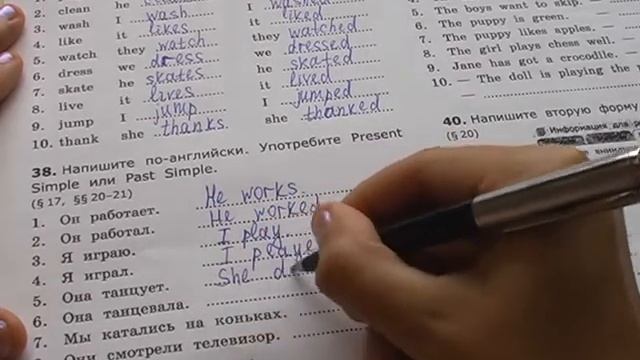 2. clean he
3. wash I wash I washed
4. like it likes it liked
5. watch they watch they watched
6. dress we dress we dressed
7. skate he skates he skated
8. live it lives it lived
9. jump I jump I jumped
10. thank she thanks she thanked
5. The boys want to skip. —
6. The puppy is green.
7. The puppy likes apples. —
8. The girl plays chess well.
9. Jane has got a crocodile.
10. — The doll is playing the
—
38. Напишите по-английски. Употребите Present
Simple или Past Simple.
(§ 17, §§ 20–21)
1. Он работает. He works
2. Он работал. He worked
3. Я играю. I play
4. Я играл. I
5. Она танцует. She d
6. Она танцевала.
7. Мы катались на коньках.
8. Они смотрели телевизор.
40. Напишите вторую форму
(§ 20)
Информация для